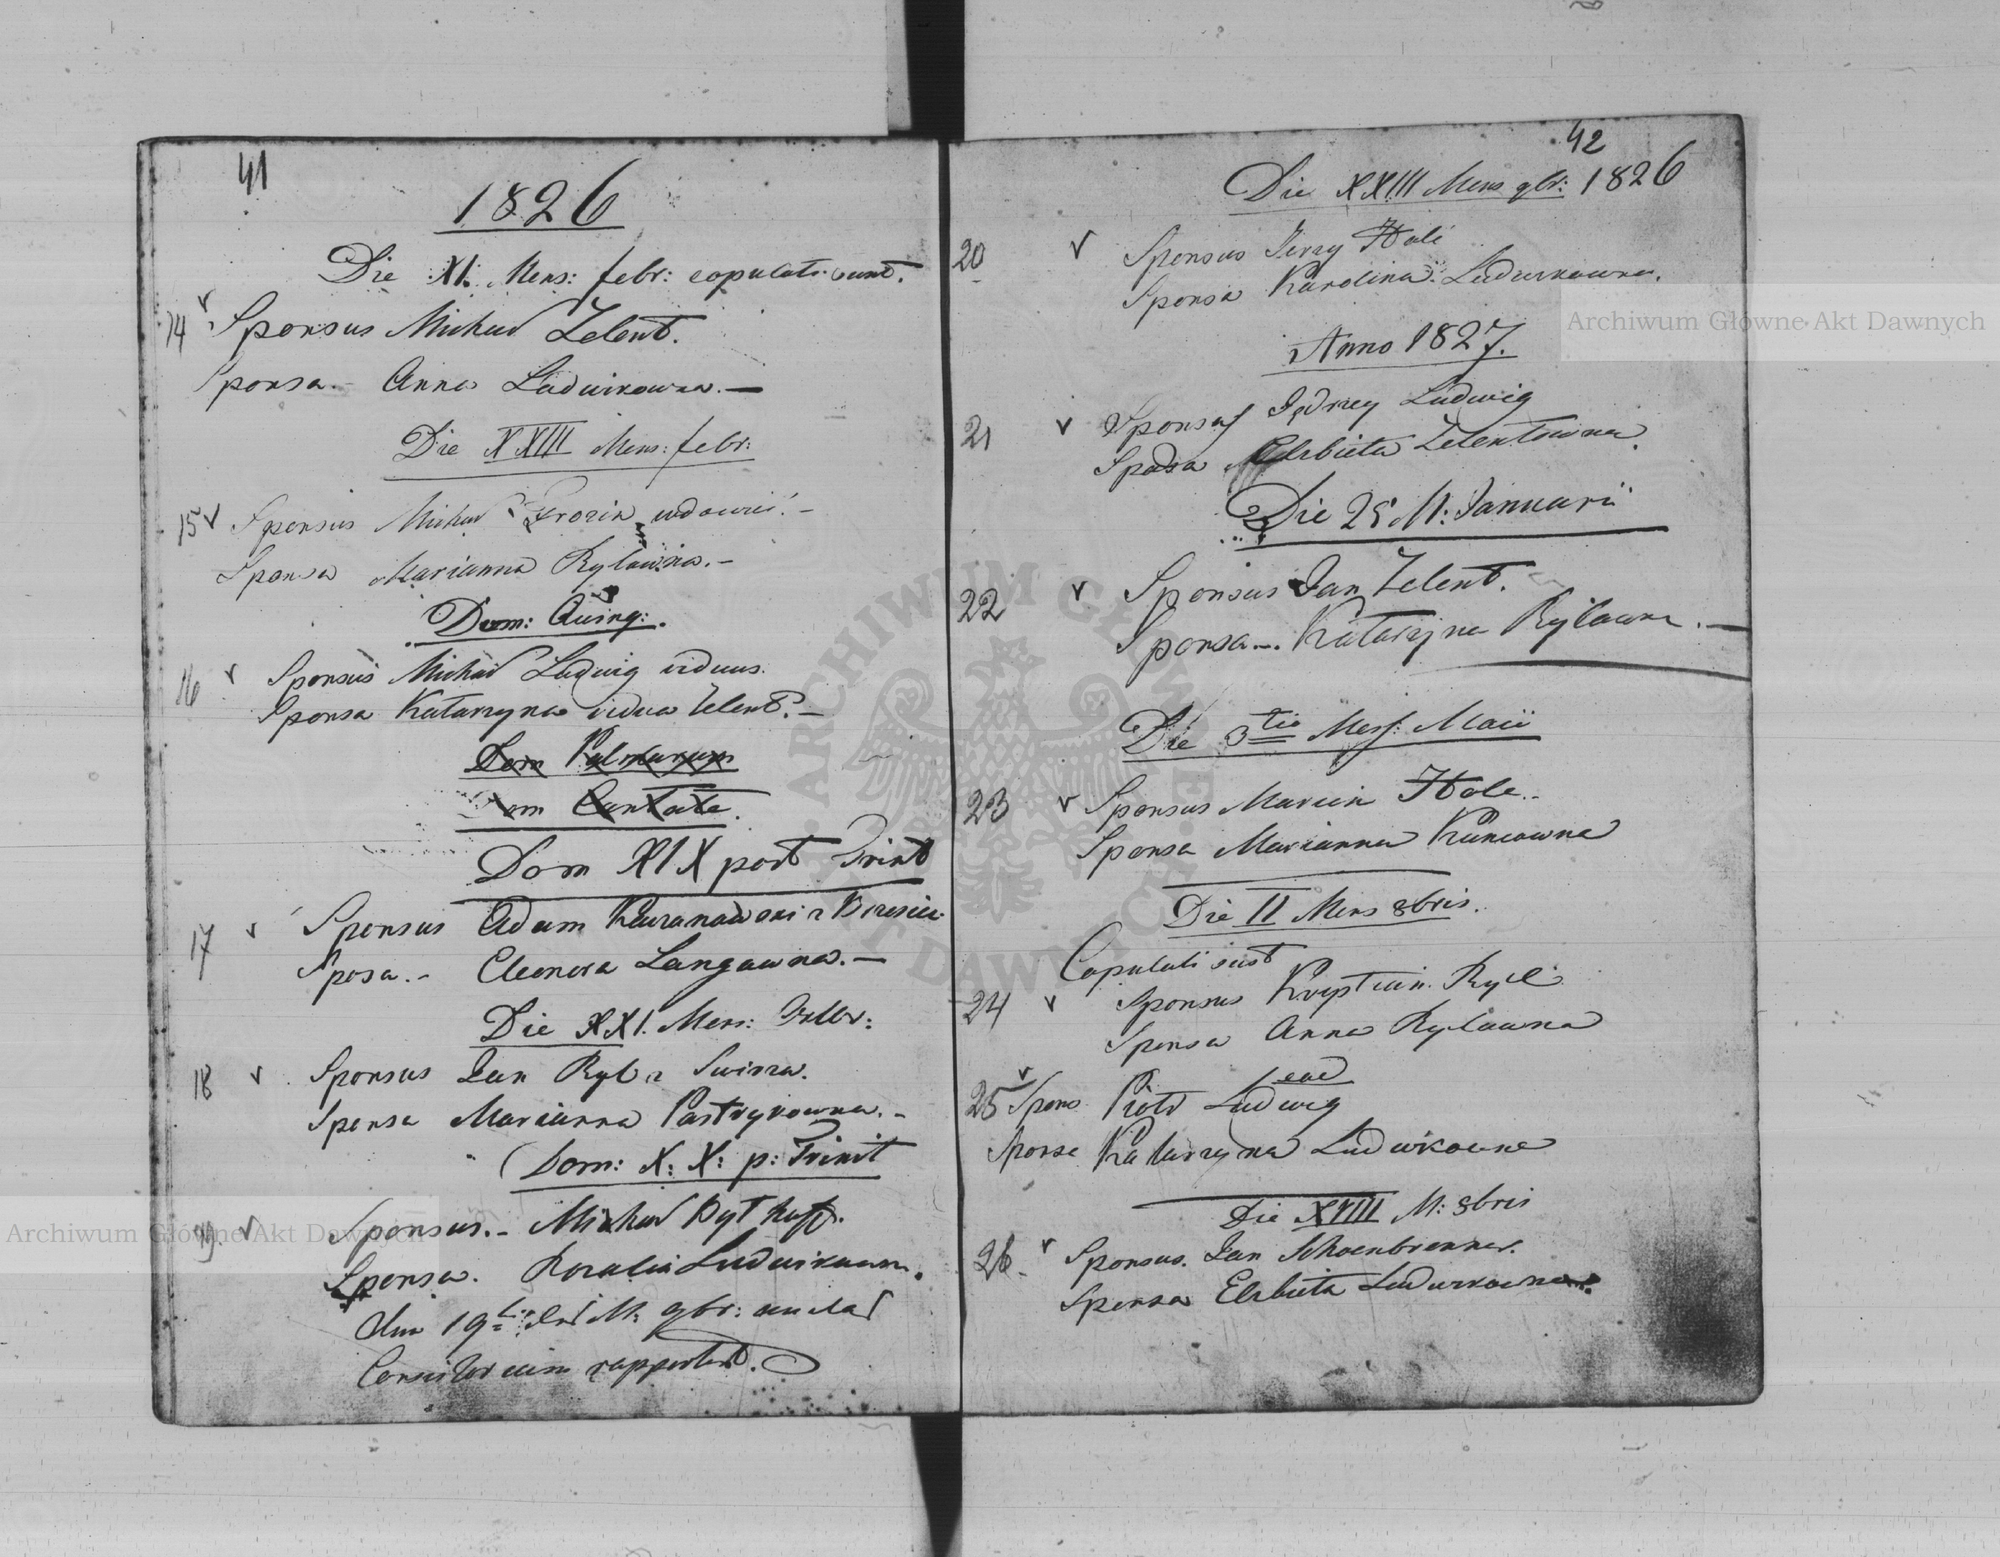 41
1826
Die XI. Mens: febr: copulati sunt.
14 v Sponsus Michał Zelent.
Sponsa.- Anna Ludwikowna.-
Die XXIII Mens: febr:
15 v Sponsus Michał
Sponsa Marianna Rylowna.-
Dom: Quinq:
16 v Sponsus Michał Ludwig viduus.
Sponsa Katarzyna vidua Zelent.-
Dom Palmarum
Dom Cantate.
Dom XIX post Trinit
17 v Sponsus Adam
Sposa.- Eleonora Langowna.-
Die XXI. Mens: Octbr:
18 v Sponsus Jan Ryl z
Sponsa Marianna Pastrykowna.-
Dom: X: X: p: Trinit
v Sponsus.- Michał
Sponsa. Rozalia Ludwikowna.
19 M: 9br:
42
Die XXIII Mens 9br: 1826
20 v Sponsus Jerzy Hole
Sponsa Karolina Ludwikowna.
Anno 1827.
21 v Sponsus Jędrzey Ludwig
Sponsa Elzbieta Zelentowna.
Die 25 M: Januarii
22 v Sponsus Jan Zelent.
Sponsa.-. Katarzyna Rylowna.-
Die 3tio Mens: Maii
23 v Sponsus Marcin Hole.-
Sponsa Marianna Kuncowna
Die II Mens 8bris.
Copulati sunt
24 v Sponsus Ryl
Sponsa Anna Rylowna
ead
25 v Spons Piotr Ludwig
Sponsa Katarzyna Ludwikowna
Die XVIII M: 8bris
26 v Sponsus. Jan Schoenbrenner.
Sponsa Elzbieta Ludwikowna.
Archiwum Główne Akt Dawnych
Archiwum Główne Akt Dawnych
ARCHIWUM GŁÓWNE AKT DAWNYCH